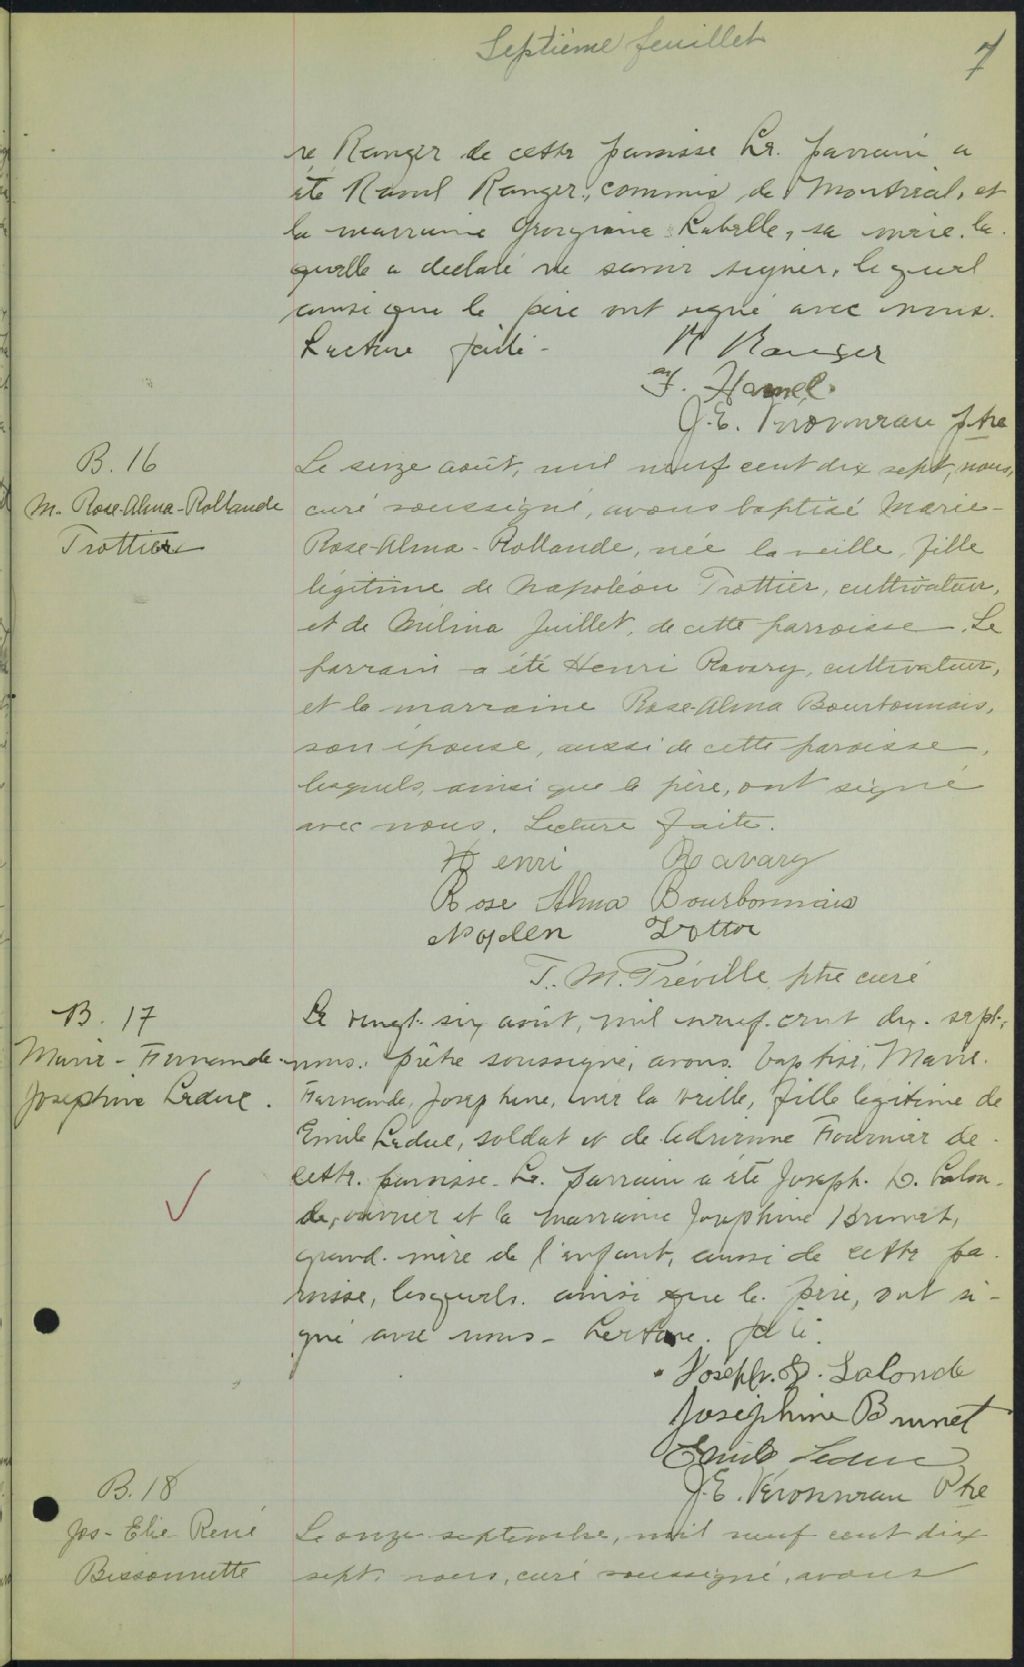 Septième feuillet
7
re Ranger de cette paroisse Le. parrain a
été Raoul Ranger, commis, de Montréal, et
la marraine Georgiana Labelle, sa mère. la
quelle a déclaré ne savoir signer, lequel
ainsi que le père ont signé avec nous.
Lecture faite -
R Ranger
F. Hamel
J. E. Véronneau ptre
B. 16
M. Rose-Alma-Rollande
Trottier
Le seize août, mil neuf cent dix sept, nous,
curé soussigné, avons baptisé Marie-
Rose-Alma-Rollande, née la veille, fille
légitime de Napoléon Trottier, cultivateur,
et de Mélina Juillet, de cette parroisse. Le
parrain a été Henri Ravary, cultivateur,
et la marraine Rose-Alma Bourbonnais,
son épouse, aussi de cette paroisse,
lesquels, ainsi que le père, ont signé
avec nous. Lecture faite.
Henri Ravary
Rose Alma Bourbonnais
T. M. Préville ptre curé
B. 17
Marie-Fernande
Josephine Leduc.
Le vingt-six août, mil neuf-cent dix-sept,
nous, prêtre soussigné, avons baptisé, Marie
Fernande, Josephine, née la veille, fille légitime de
Emile Leduc, soldat et de Adrienne Fournier de
cette paroisse. Le. parrain a été Joseph. D. Lalon-
de, ouvrier et la marraine Josephine Brunet,
grand-mère de l'enfant, aussi de cette pa-
roisse, lesquels. ainsi que le père, ont si-
gné avec nous - Lecture faite.
Joseph. D. Lalonde
Josephine Brunet
Emile Leduc
J. E. Véronneau Ptre
B. 18
Jos-Elie René
Bissonnette
Le onze septembre, mil neuf cent dix
sept, nous, curé soussigné, avons